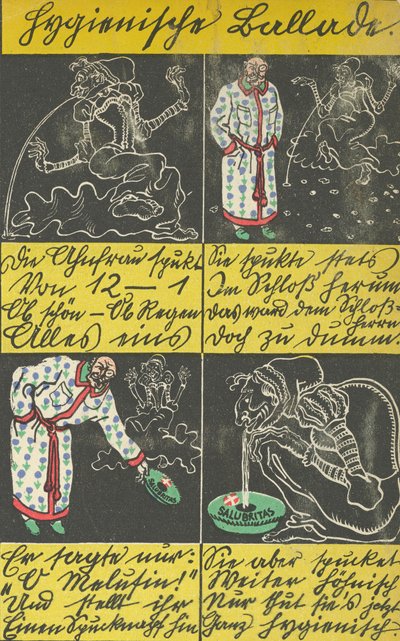 Hygienische Ballade.
Die Ahnfrau spukt
Von 12 — 1
Ob schön — Ob Regen
Alles eins
Sie spukte stets
Im Schloß herum
Das ward dem Schloß=
herrn
doch zu dumm.
SALUBRITAS
Er sagte nur:
"O Melusin!"
Und stellt ihr
Einen Spucknapf hin
SALUBRITAS
Sie aber spucket
Weiter höhnisch
Nur thut sie's jetzt
Ganz hygienisch